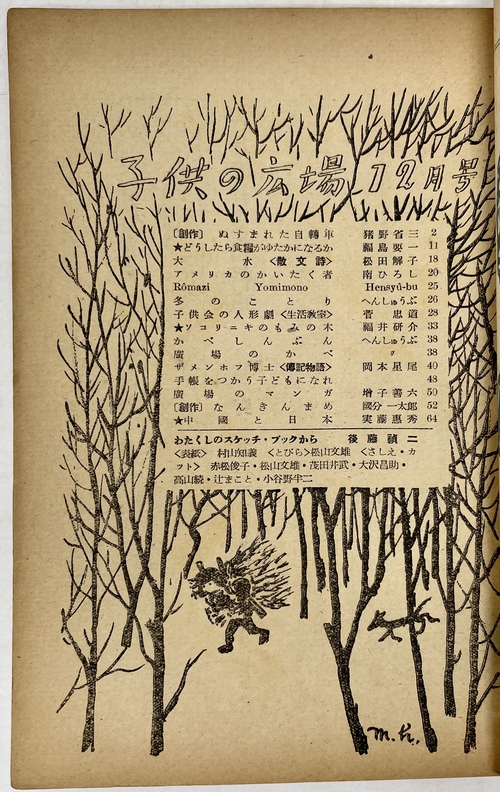 子供の広場 12月号
〔創作〕 ぬすまれた自轉車 猪野省三 2
★どうしたら食糧がゆたかになるか 福島要一 11
大水〈散文詩〉 松田解子 18
アメリカのかいたく者 南ひろし 20
Rômazi Yomimono Hensyû-bu 25
冬のことり へんしゅうぶ 26
子供会の人形劇〈生活教室〉 菅忠道 28
★ソコリニキのもみの木 福井研介 33
かべしんぶん へんしゅうぶ 38
廣場のかべ 〃 38
ザメンホフ博士〈傳記物語〉 岡本星尾 40
手帳をつかう子どもになれ 48
廣場のマンガ 増子善六 50
〔創作〕 なんきんまめ 國分一太郎 52
★中國と日本 実藤惠秀 64
わたくしのスケッチ・ブックから 後藤禎二
〈表紙〉 村山知義 〈とびら〉松山文雄 〈さしえ・カ
ット〉 赤松俊子・松山文雄・茂田井武・大沢昌助・
高山続・辻まこと・小谷野半二
m.h.